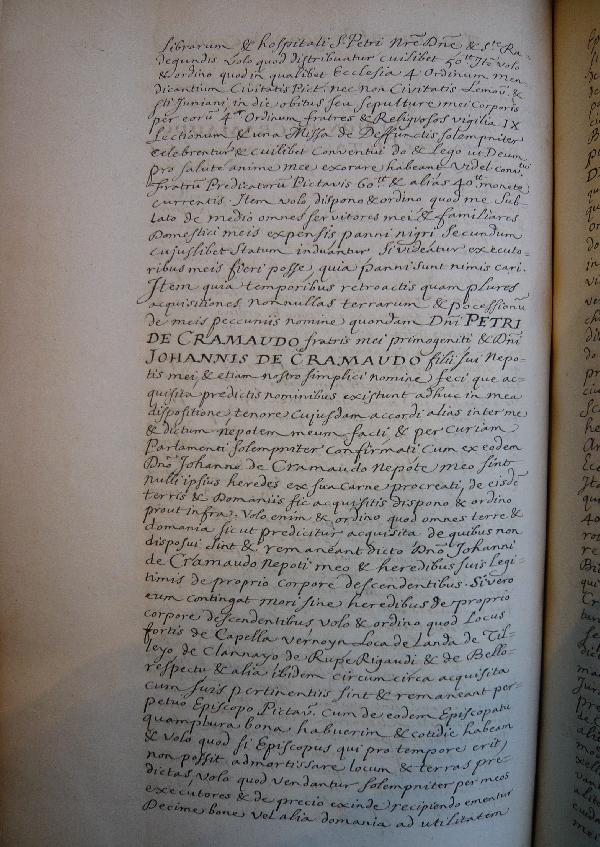 Librarum & hospitali S. Petri Nrē Dnē & Ste Ra-
degundis volo quod distribuatur cuilibet 50 tt Itē volo
& ordino quod in qualibet Ecclesia 4 Ordinum men
dicantium Civitatis Pict. nec non Civitatis Lemou. &
sti Juniani, in die obitus seu sepulture mei Corporis
per eorū 4or Ordinum fratres & Religiosos vigilia IX
Lectionum & una Missa de Deffunctis solempniter
celebrentur & cuilibet Conventui do & lego ut Deum
pro salute anime mee exorare habeant videl. conventui
fratrū Predicatorū Pictavis 60 tt & aliis 40 tt monete
currentis. Item volo dispono & ordino quod me sub-
lato de medio omnes servitores mei & familiares
Domestici meis expensis panni nigri secundum
cujuslibet statum induantur si videatur executo-
ribus meis fieri posse, quia panni sunt nimis cari.
Item quia temporibus retroactis quam plures
acquisitiones nonnullas terrarum & pocessionū
de meis peccuniis nomine quondam Dni PETRI
DE CRAMAUDO fratris mei primogeniti & Dni
JOHANNIS DE CRAMAUDO filii sui Nepo-
tis mei & etiam nostro simplici nomine feci que ac-
quisita predictis nominibus existunt adhuc in mea
dispositione tenore cujusdam accordi alias inter me
& dictum nepotem meum facti & per Curiam
Parlamenti solempniter confirmati Cum ex eodem
Dno Johanne de Cramaudo Nepote meo sint
nulli ipsius heredes ex sua carne procreati, de eisdē
terris & Domaniis sic acquisitis dispono & ordino
prout infra. Volo enim & ordino quod omnes terre &
domania sicut predicitur acquisita de quibus non
disposui sint & remaneant dicto Dno Johanni
de Cramaudo Nepoti meo & heredibus suis legi-
timis de proprio corpore descendentibus. Si vero
eum contingat mori sine heredibus de proprio
corpore descendentibus volo & ordino quod Locus
fortis de Capella vernoyn Loca de Landa de Til-
leyo de Clannayo de Rupe Rigaudi & de Bello-
respectu & alia ibidem circum circa acquisita
cum suis pertinentiis sint & remaneant per-
petuo Episcopo Pictav. Cum de eodem Episcopatu
quamplura bona habuerim & cotidie habeam
& volo quod si Episcopus qui pro tempore erit
non possit admortissare locum & terras pre-
dictas, volo quod vendantur solempniter per meos
executores & de precio exinde recipiendo ementur
Decime bone vel alia domania ad utilitatem